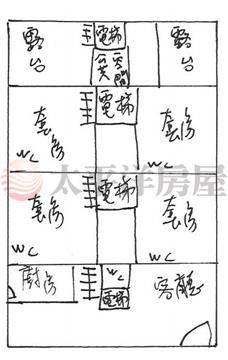 露台 電梯 露台
天井
套房 電梯
WC 套房 WC
太平洋房屋
套房 電梯 套房
WC WC
廚房 WC 客廳
電梯